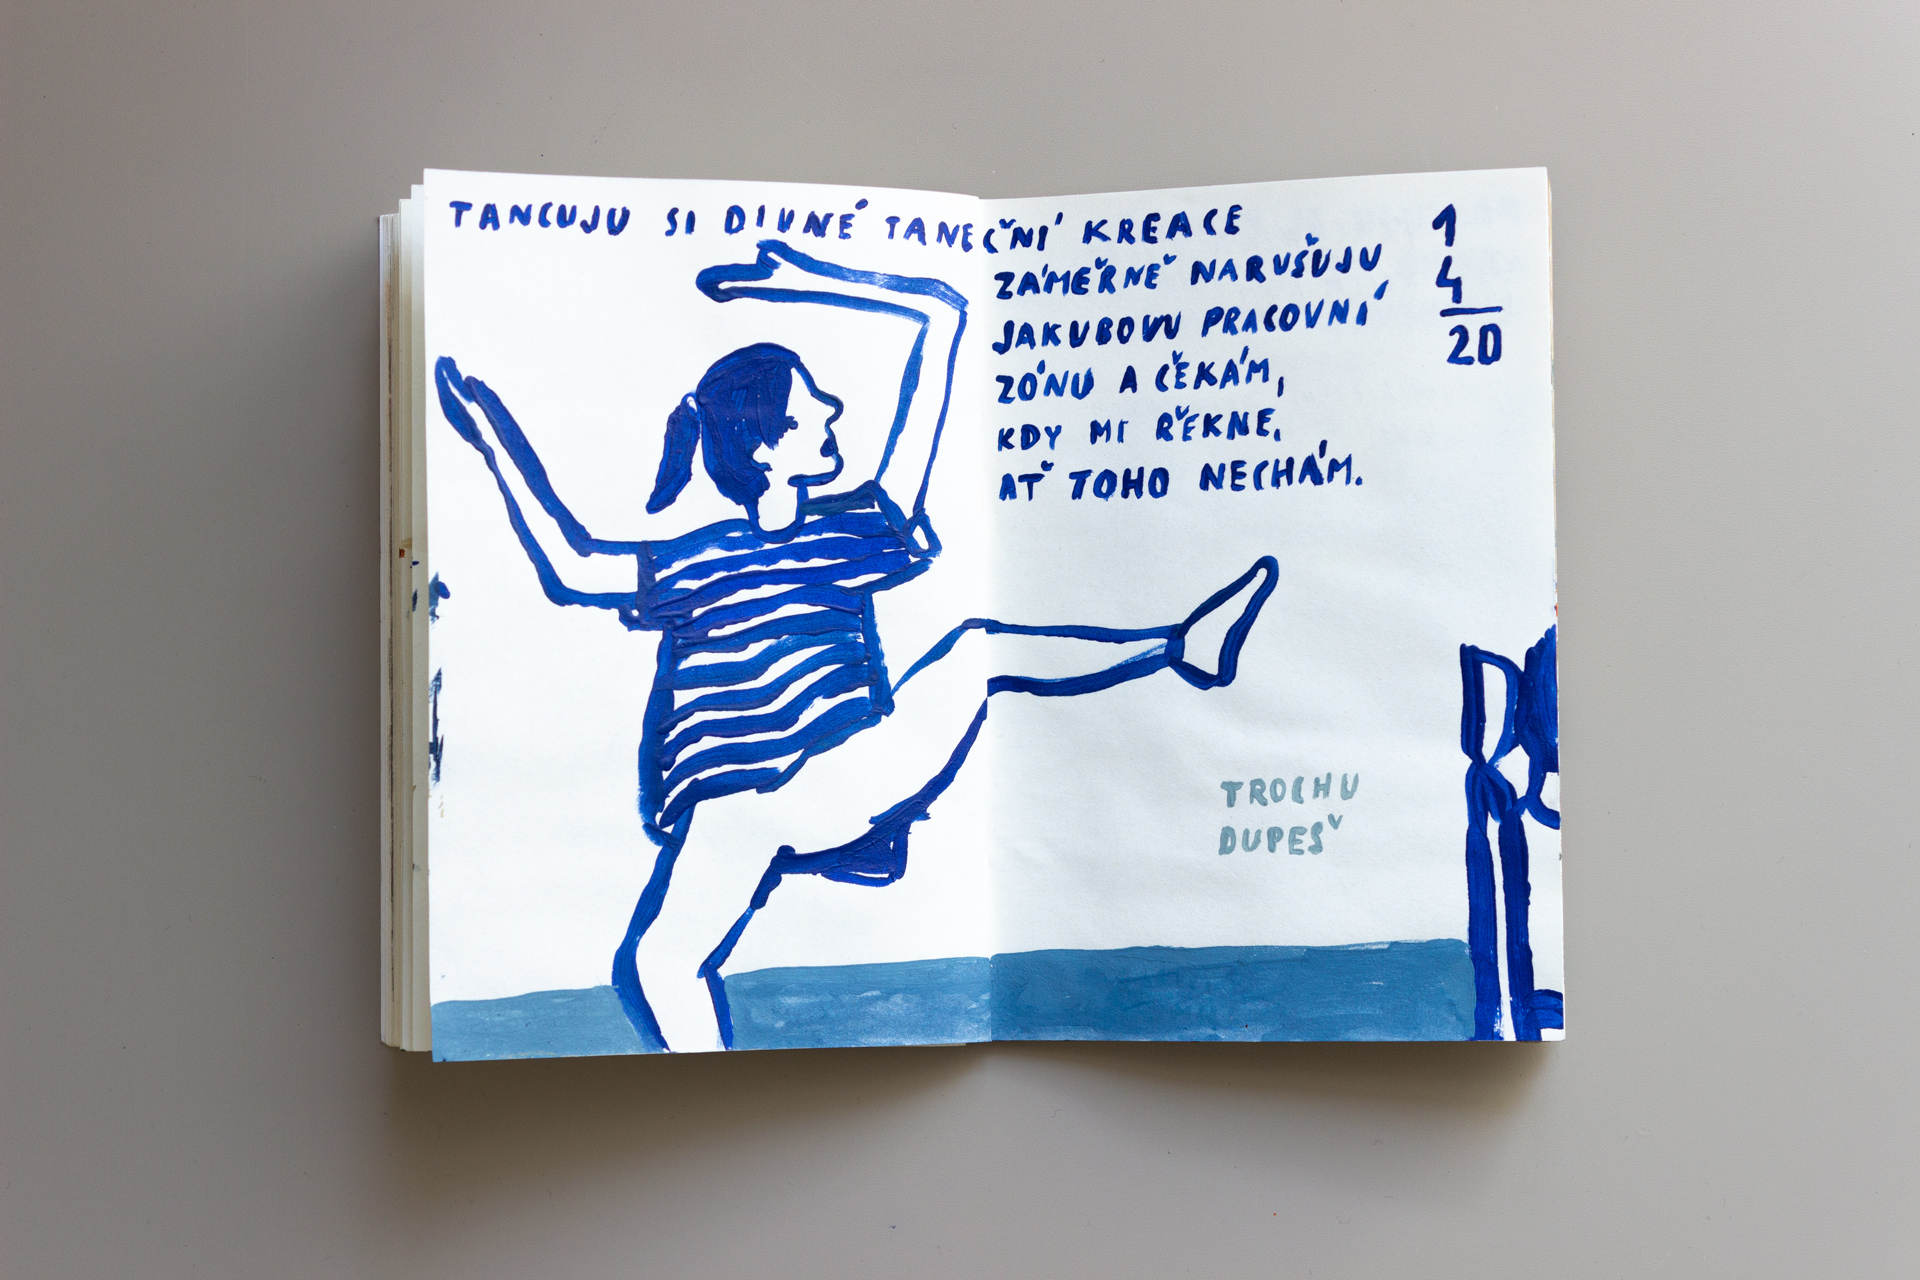 TANCUJU SI DIVNÉ TANEČNÍ KREACE
ZÁMĚRNĚ NARUŠUJU
JAKUBOVU PRACOVNÍ
ZÓNU A ČEKÁM,
KDY MI ŘEKNE,
AŤ TOHO NECHÁM.
1
4
20
TROCHU
DUPEŠ